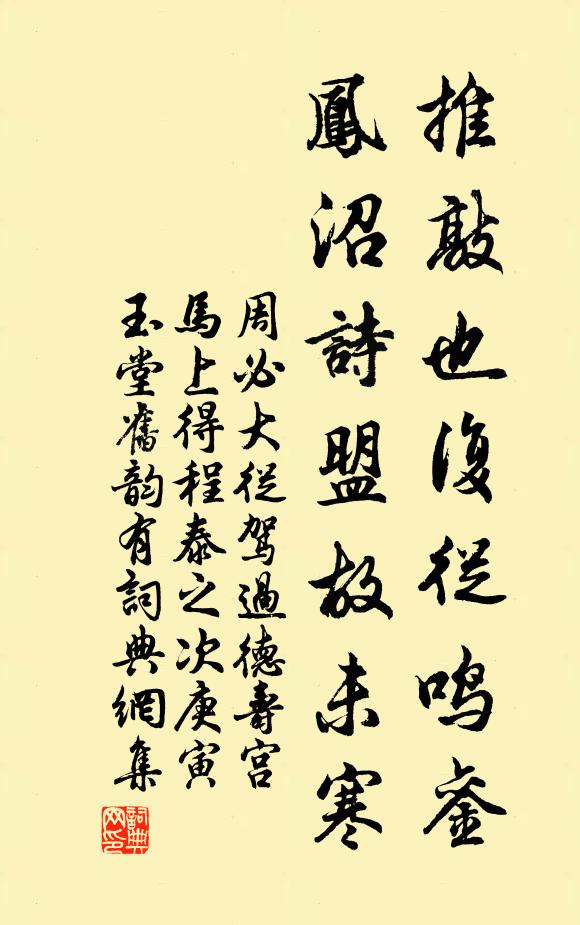 推敲也復從鳴銮
鳳沼詩盟故未寒
周必大從駕過德壽宫
馬上得程泰之次庚寅
玉堂舊韵有詞典網集
詞典
网印